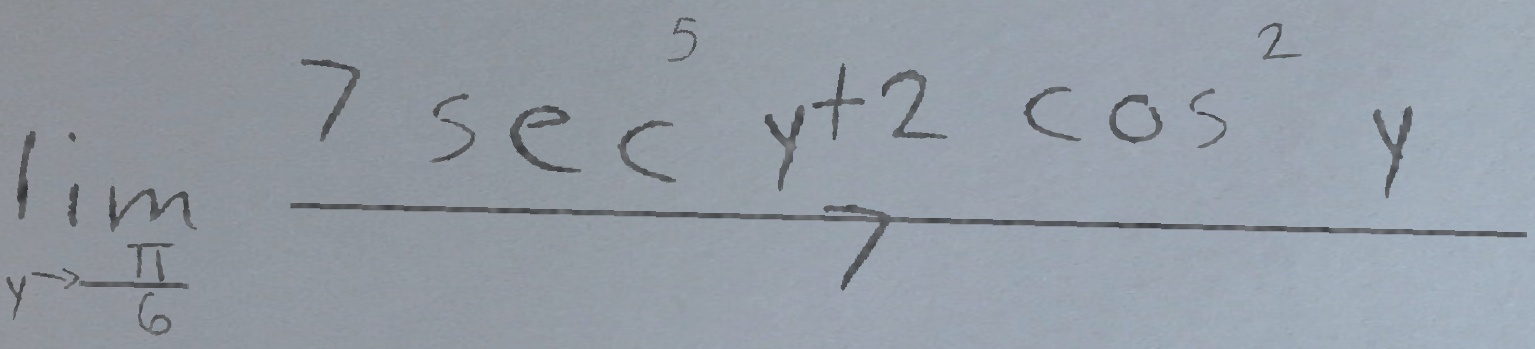 lim y→π/6 (7 sec^5 y + 2 cos^2 y) / 7